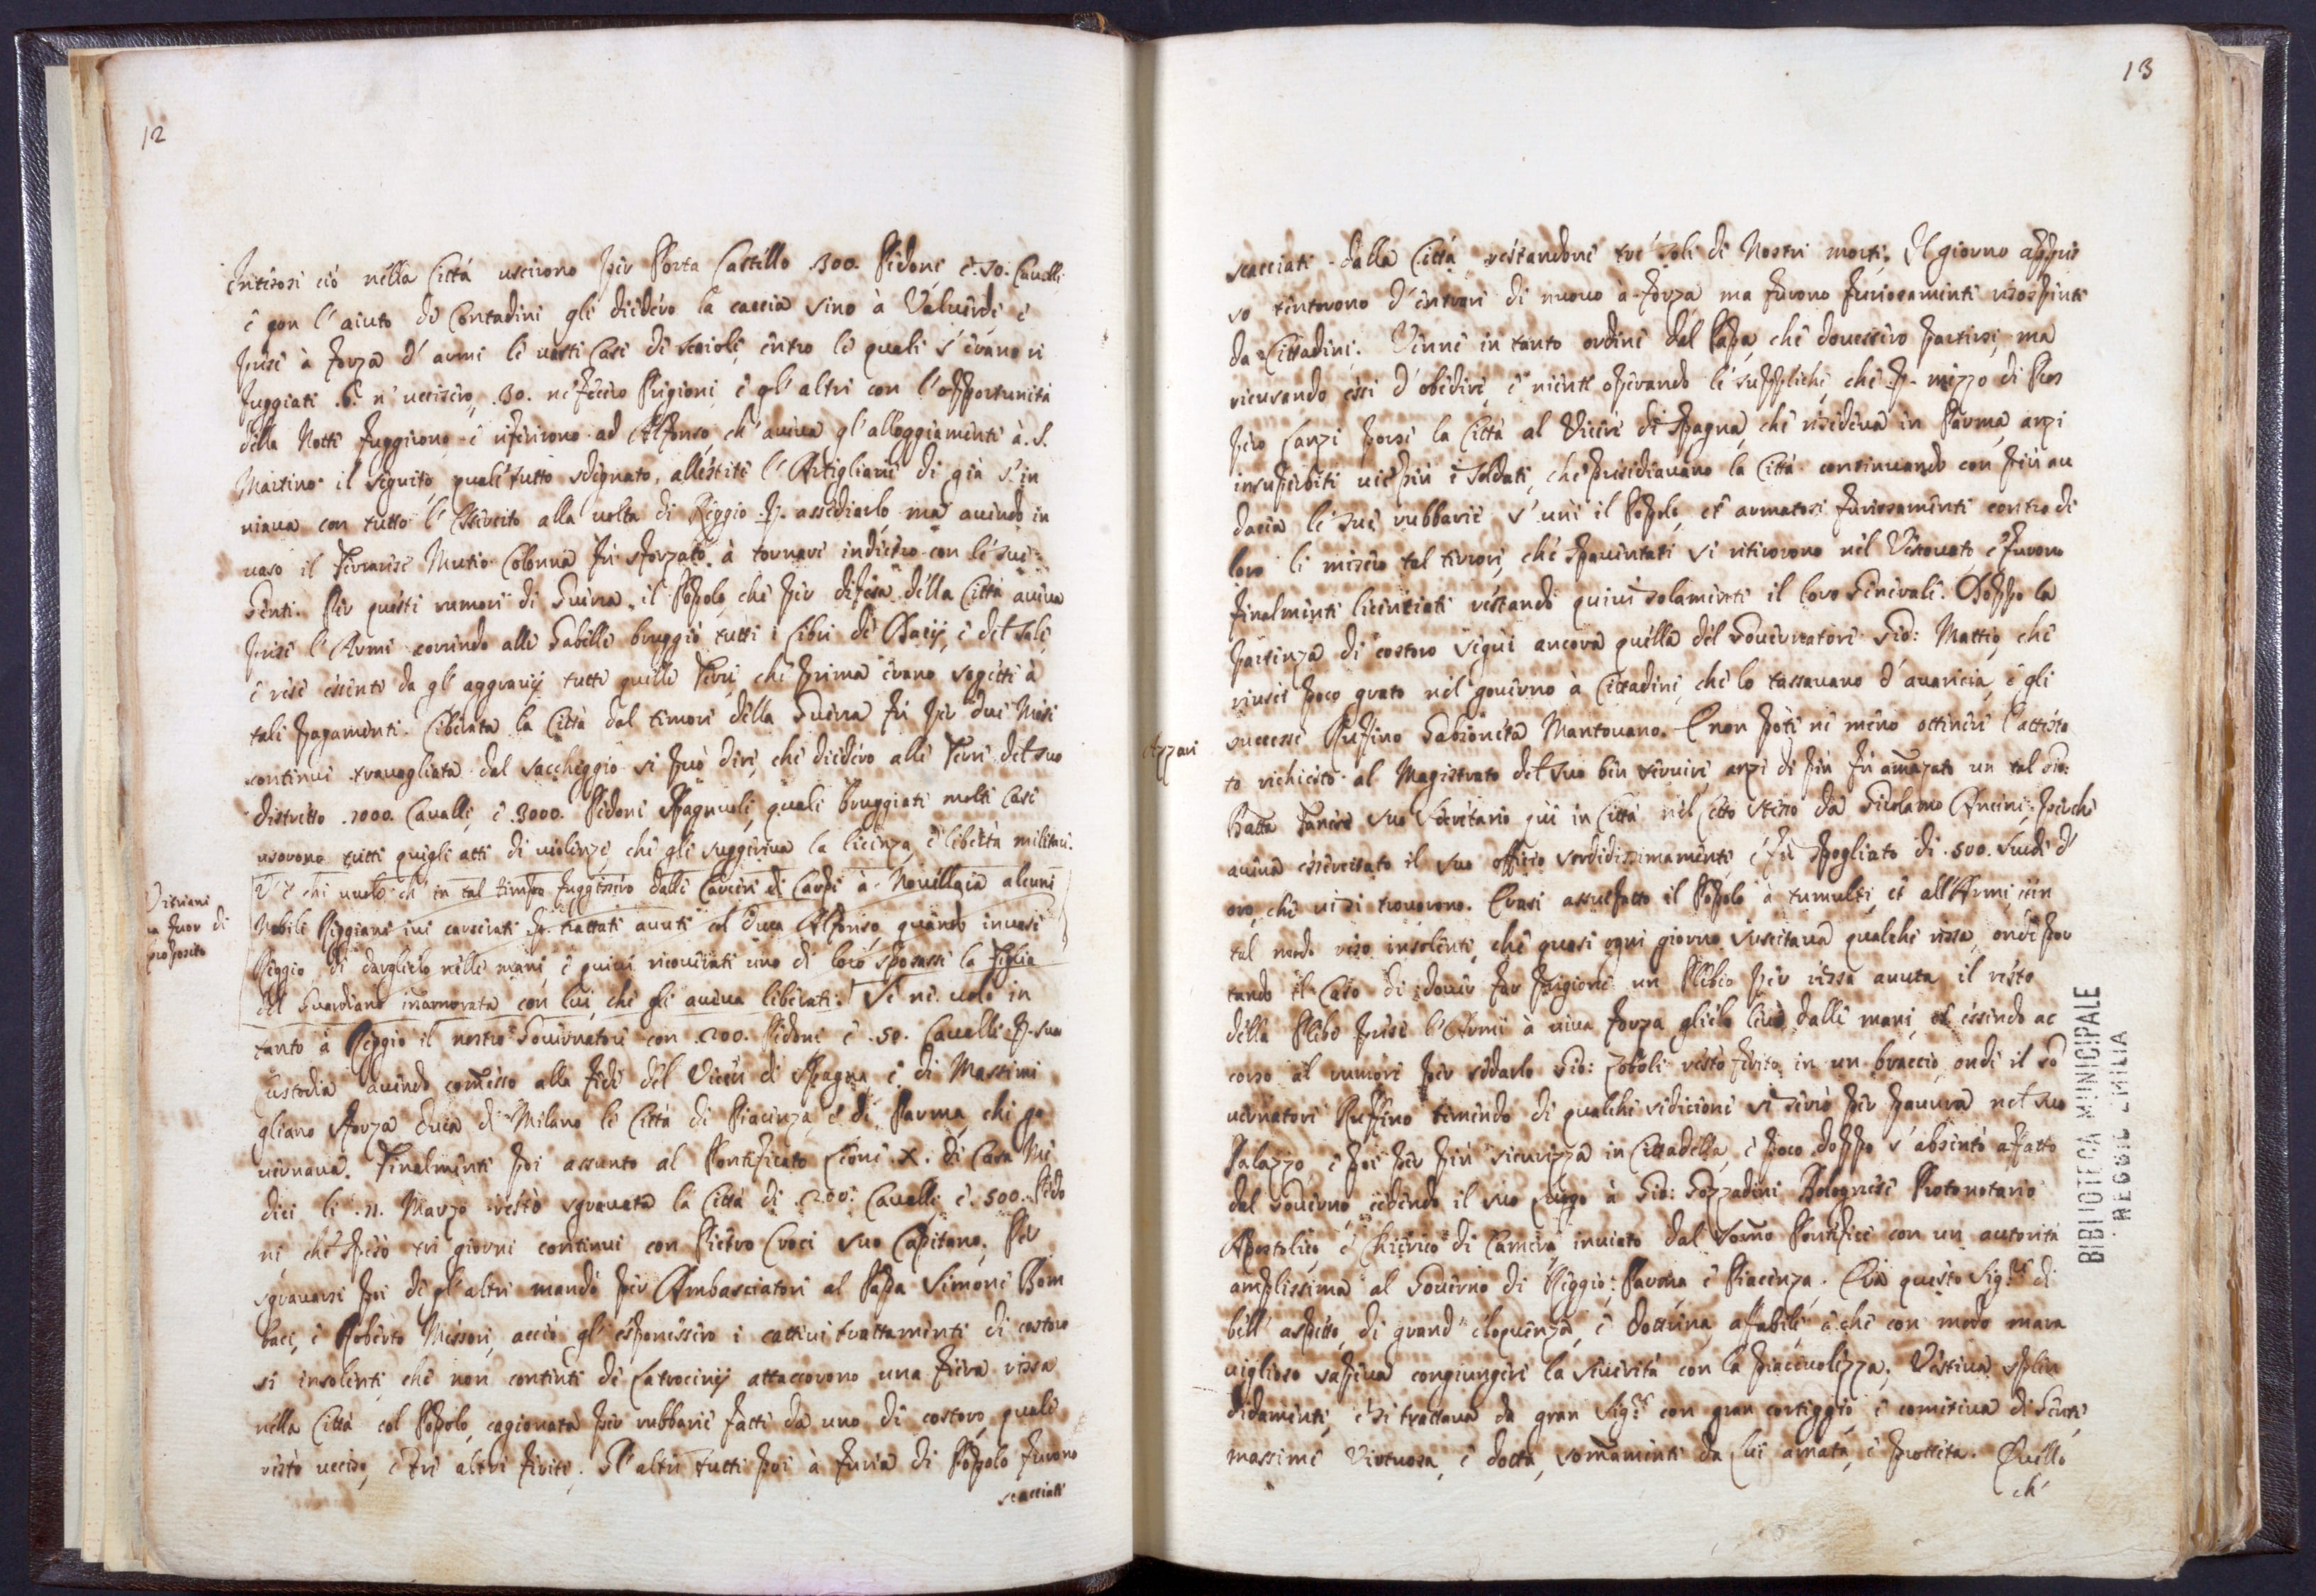 12
Intesosi ciò nella Città uscirono per Porta Castello .300. Pedoni, e .50. Cavalli,
e con l'aiuto de Contadini gli diedero la caccia sino à Valverde, e
prese à forza d'armi le vaste Case de Scaioli, entro le quali s'erano ri
fuggiati .6. n'uccisero, .30. ne fecero Prigioni, e gl'altri con l'opportunità
della Notte fuggirono, e riferirono ad Alfonso, ch'aveva gl'alloggiamenti à S.
Martino il seguito, quale tutto sdegnato, allestite l'Artigliarie di già s'in
viava con tutto l'Essercito alla volta di Reggio p. assediarlo, ma avendo in
vaso il Ferrarese Mutio Colonna fù sforzato à tornare indietro con le sue
Genti. Per questi rumori di Guerra, il Popolo, che per difesa della Città aveva
prese l'Armi correndo alle Gabelle bruggiò tutti i Libri de Datij, e del Sale,
e rese essenti da gl'aggravij tutte quelle Terre, che prima erano sogette à
tali pagamenti. Liberata la Città dal timore della Guerra fù per due Mesi
continui travagliata dal saccheggio si può dire, che diedero alle Terre del suo
distretto .1000. Cavalli, e .3000. Pedoni Spagnuoli, quali bruggiate molte Case
usorono tutti quegli atti di violenze, che gli suggeriva la licenza, e libertà militare.
V'è chi vuole ch'in tal tempo fuggissero dalle Carceri di Carpi à Novellaia alcuni
Nobili Reggiani ivi carcerati p. trattati avuti col Duca Alfonso, quando invase
Reggio di darglielo nelle mani, e quivi ricoverati uno di loro sposasse la Figlia
del Guardiano inamorata con lui, che gli aveva liberati. Se ne volò in
Vedriani
va fuor di
proposito
tanto à Reggio il nostro Governatore con .200. Pedoni e .50. Cavalli p. sua
Custodia avendo comesso alla fede del Vicerè di Spagna, e di Massimi
gliano Sforza Duca di Milano le Città di Piacenza, e di Parma, che go
vernava. Finalmente poi assunto al Pontificato Leone .X. di Casa Me
dici li .11. Marzo restò sgravata la Città di .200. Cavalli, e .500. Pedo
ni, che spesò tre giorni continui con Pietro Croci suo Capitano. Per
sgravarsi poi de gl'altri mandò per Ambasciatori al Papa Simone Bom
baci, e Roberto Messori, acciò gl'esponessero i cattivi trattamenti di costoro
sì insolenti, che non contenti de Latrocinij attaccorono una fiera rissa
nella Città col Popolo, cagionata per rubbarie fatte da uno di costoro, quale
restò ucciso, e tre altri feriti. Gl'altri tutti poi à furia di Popolo furono
scacciati
13
scacciati dalla Città, restandone trè soli di Nostri morti. Il giorno appres
so tentorono d'entrare di nuovo à forza, ma furono furiosamente risospinti
da Cittadini. Venne in tanto ordine dal Papa, che dovessero partirsi, ma
ricusando essi d'obedire, e niente operando le suppliche, che p. mezzo di Pros
pero Lanzi porse la Città al Vicerè di Spagna, che risiedeva in Parma, anzi
insuperbiti vie più i Soldati, che presidiavano la Città continuando con più au
dacia le sue rubbarie s'unì il Popolo, et armatosi furiosamente contro di
loro li misero tal terrore, che spaventati si ritirorono nel Vescovato, e furono
finalmente licentiati restando quivi solamente il loro Generale. Doppo la
partenza di costoro seguì ancora quella del Governatore Gio: Mattio, che
riuscì poco grato nel governo à Cittadini, che lo tassavano d'avaricia, e gli
successe Ruffino Gabioneta Mantovano. E non potè ne meno ottenere l'attesta
Azzari
to richiesto al Magistrato del suo ben servire, anzi di più fù amazato un tal Gio:
Batta suo Secretario quì in Città nel Letto stesso da Girolamo Ancini, perche
aveva essercitato il suo officio sordidissimamente, e fù spogliato di .500. Scudi d'
oro, che vi si trovorono. Erasi assuefatto il Popolo à tumulti, et all'Armi, et in
tal modo reso insolente, che quasi ogni giorno suscitava qualche rissa, onde por
tando il Caso di dover far prigione un Plebeo per rissa avuta il resto
della Plebe prese l'Armi à viva forza glielo levò dalle mani, et essendo ac
corso al rumore per sedarlo Gio: Zoboli restò ferito in un braccio, onde il Go
vernatore Ruffino temendo di qualche sedicione si serrò per paura nel suo
Palazzo, e poi per più sicurezza in Cittadella, e poco doppo s'absentò affatto
dal Governo cedendo il suo luogo à Gio: Gozzadini Bolognese Protonotario
Apostolico, e Chierico di Camera, inviato dal Somo Pontefice con un autorità
amplissima al Governo di Reggio; Parma, e Piacenza. Era questo Sig.re di
bell'aspetto, di grand'eloquenza, e dottrina, affabile, e che con modo mara
viglioso sapeva congiungere la severità con la piacevolezza; Vestiva splen
didamente, e si trattava da gran Sig.re con gran corteggio, e comitiva di Gente,
massime Virtuosa, e dotta, somamente da lui amata, e protteta. Quello
ch'
BIBLIOTECA MUNICIPALE
REGGIO EMILIA